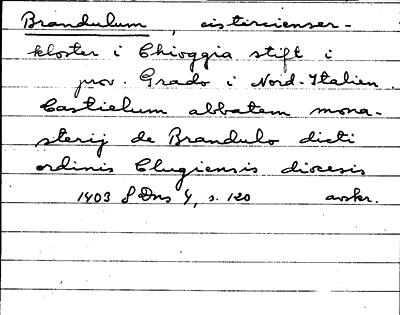 Brandulum, cistercienser-
kloster i Chioggia stift i
prov. Grado i Nord-Italien.
Castielum abbatem mona-
sterij de Brandulo dicti
ordinis Clugiensis diocesis
1403 S Dns 4, s. 120 avskr.